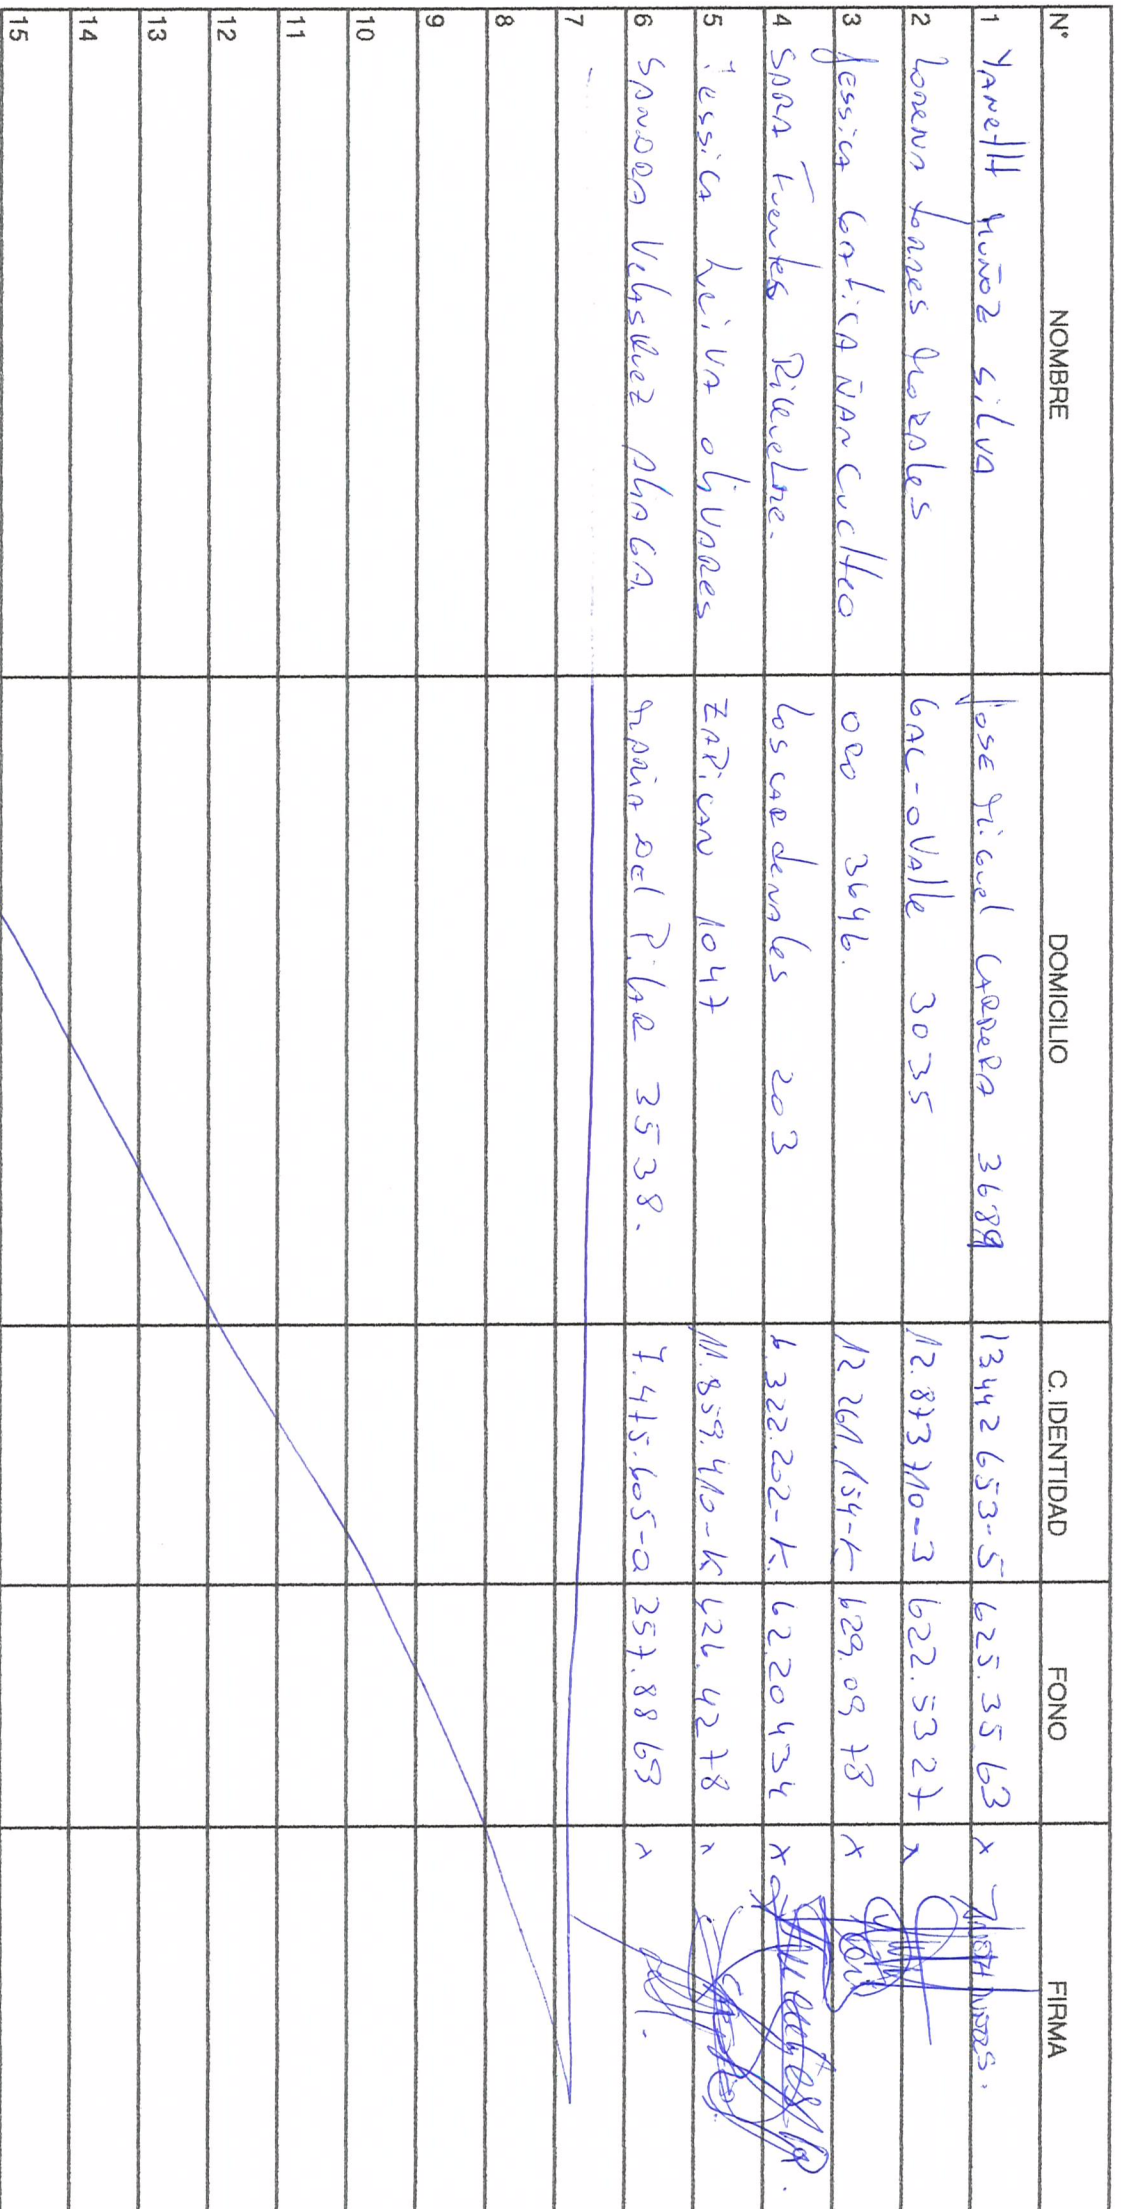 N° NOMBRE DOMICILIO C. IDENTIDAD FONO FIRMA
1 YANETH MUÑOZ SILVA JOSE MIGUEL CARRERA 3689 13442653-5 625.3563 x
2 Lorena Torres Morales GAL-OValle 3035 12.873710-3 622.5327 x
3 Jessica GATICA ÑANCUCHEO ORO 3646. 12 261.154-K 629.0978 x
4 SARA Fuentes Riquelme. Los CARdenales 203 6.322.202-K. 6220434 x
5 Jessica Leiva OliVARES ZAPICAN 1047 11.859.410-K 626.4278 x
6 SANDRA VELASQUEZ ALIAGA. MARIA DEL PILAR 3538. 7.475.605-0 357.8869 x
7
8
9
10
11
12
13
14
15